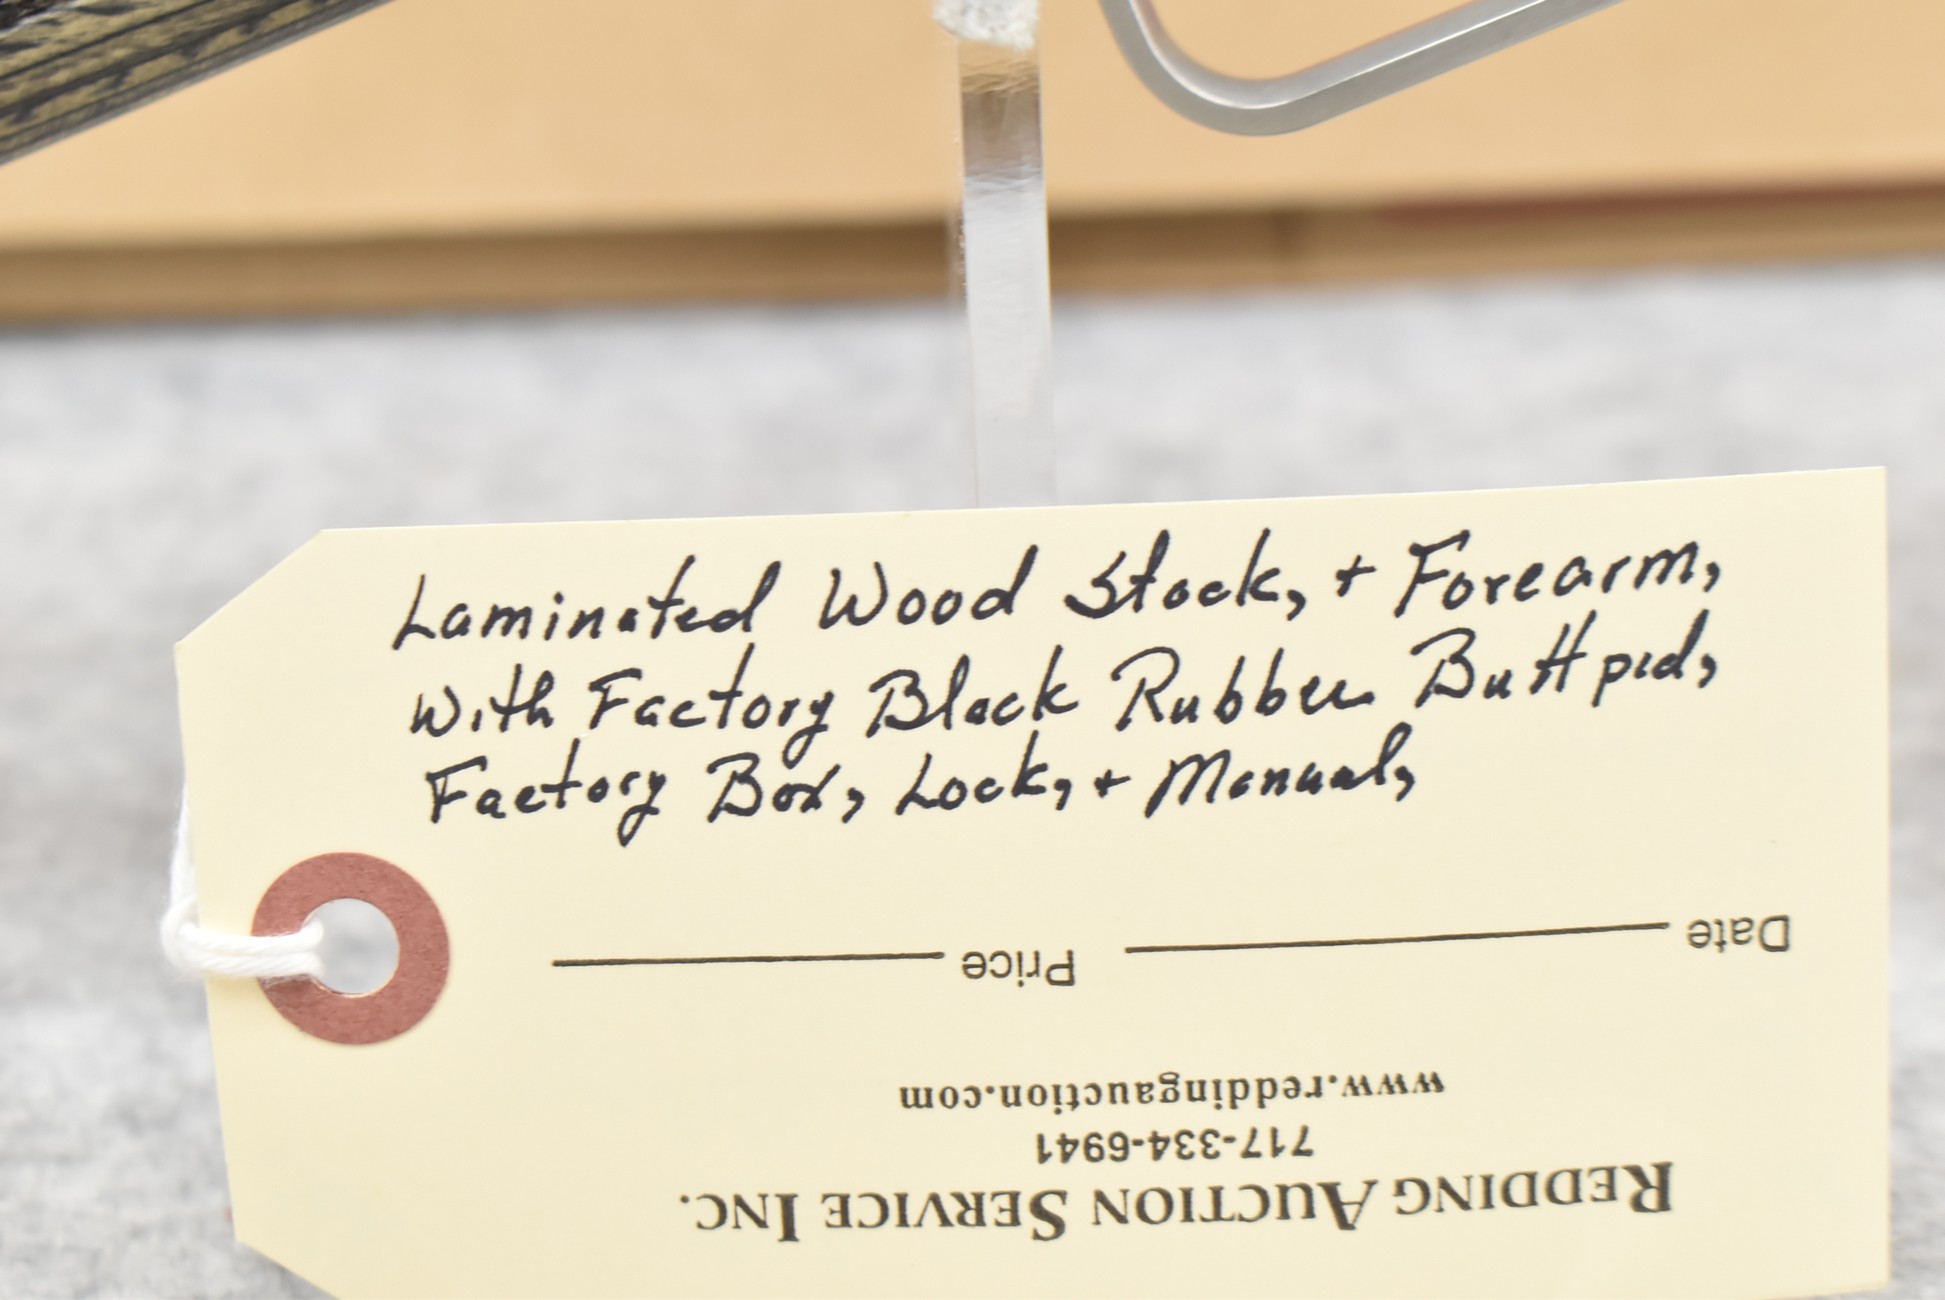 Laminated Wood Stock, + Forearm,
With Factory Black Rubber Buttpad,
Factory Box, Lock, + Manual,
Date Price
www.reddingauction.com
717-334-6941
REDDING AUCTION SERVICE INC.